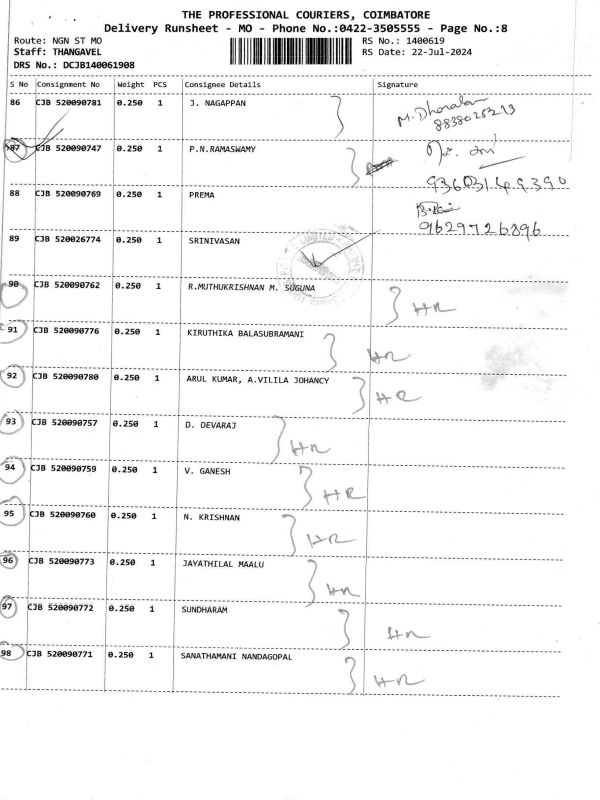 THE PROFESSIONAL COURIERS, COIMBATORE
Delivery Runsheet - MO - Phone No.:0422-3505555 - Page No.:8
Route: NGN ST MO
Staff: THANGAVEL
DRS No.: DCJB140061908
RS No.: 1400619
RS Date: 22-Jul-2024
S No Consignment No Weight PCS Consignee Details Signature
86 CJB 520090781 0.250 1 J. NAGAPPAN M. Dharalan
8838025213
87 CJB 520090747 0.250 1 P.N.RAMASWAMY
9360314939 0
88 CJB 520090769 0.250 1 PREMA
9629726896
89 CJB 520026774 0.250 1 SRINIVASAN
90 CJB 520090762 0.250 1 R.MUTHUKRISHNAN M. SUGUNA HR
91 CJB 520090776 0.250 1 KIRUTHIKA BALASUBRAMANI HR
92 CJB 520090780 0.250 1 ARUL KUMAR, A.VILILA JOHANCY HR
93 CJB 520090757 0.250 1 D. DEVARAJ HR
94 CJB 520090759 0.250 1 V. GANESH HR
95 CJB 520090760 0.250 1 N. KRISHNAN HR
96 CJB 520090773 0.250 1 JAYATHILAL MAALU HR
97 CJB 520090772 0.250 1 SUNDHARAM HR
98 CJB 520090771 0.250 1 SANATHAMANI NANDAGOPAL HR